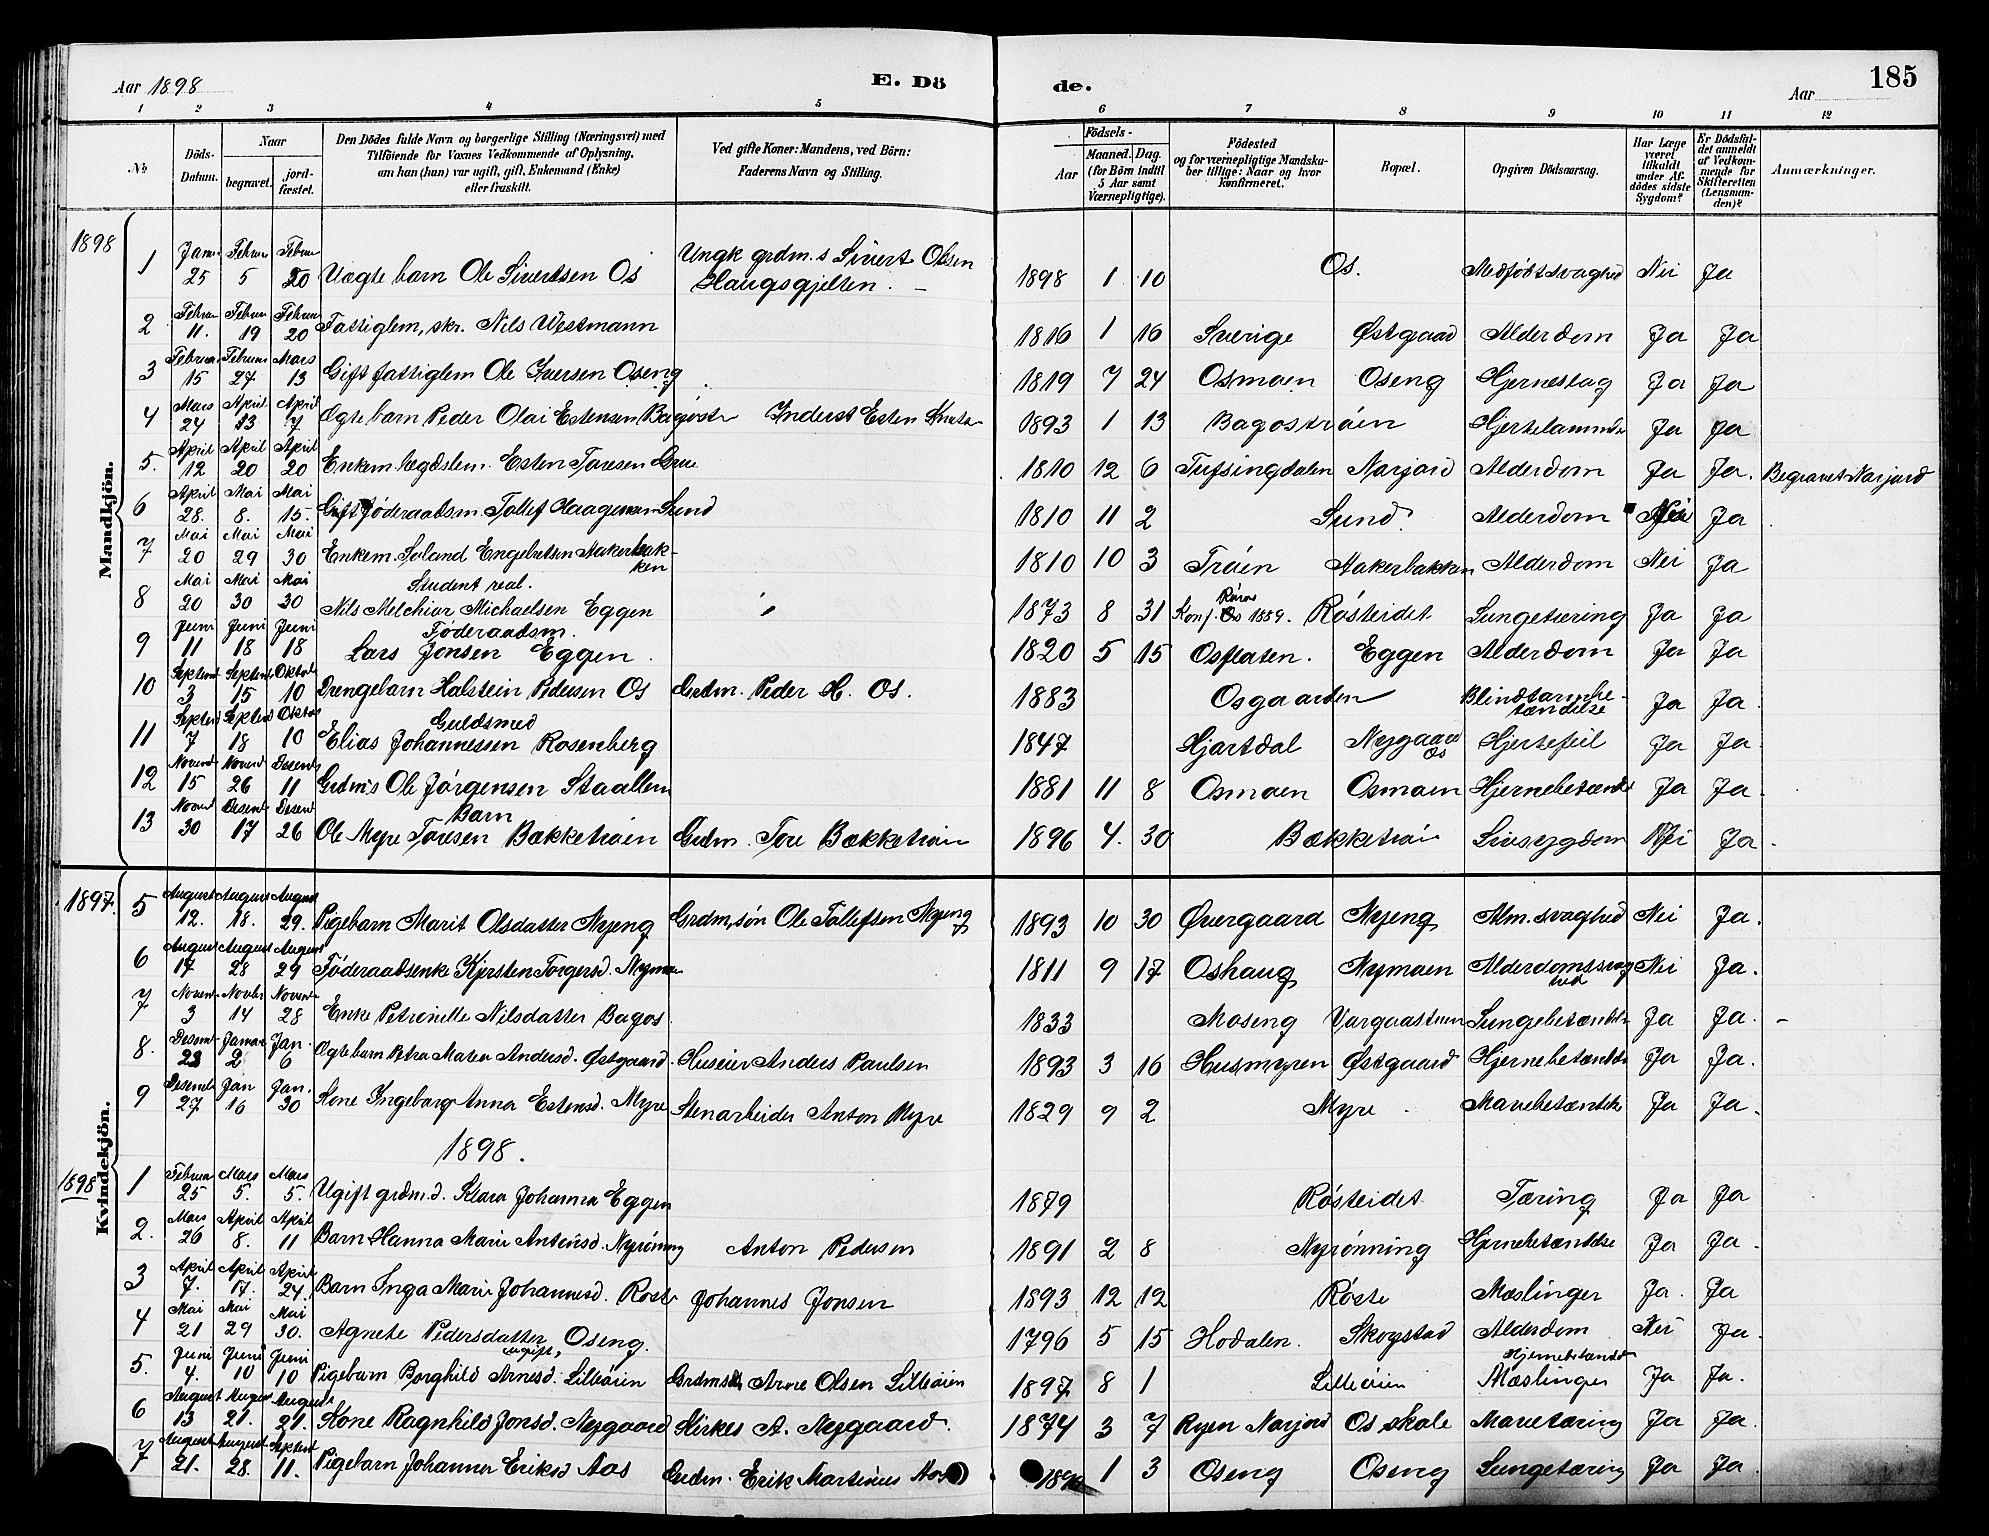 Aar 1898
E. Dö
de.
Aar
185
1 2 3 4 5 6 7 8 9 10 11 12
No
Döds-Datum.
Naar
begravet.
jord-fæstet.
Den Dödes fulde Navn og borgerlige Stilling (Næringsvei) med
Tilföiende for Voxnes Vedkommende af Oplysning,
om han (hun) var ugift, gift, Enkemand (Enke)
eller fraskilt.
Ved gifte Koner: Mandens, ved Börn:
Faderens Navn og Stilling.
Födsels-
Aar
Maaned. Dag.
(for Börn indtil
5 Aar samt
Værnepligtige).
Födested
og for værnepligtige Mandsku-
ber tillige: Naar og hvor
konfirmeret.
Bopæl.
Opgiven Dödsaarsag.
Har Læge
været
tilkaldt
under Af-
dödes sidste
Sygdom?
Er Dödsfal-
det anmeldt
af Vedkom-
mende for
Skifteretten
(Lensman-
den)?
Anmærkninger.
Mandkjön.
1898
1 Janu 25 Februar 5 Februar 20 Uægte barn Ole Sivertsen Os Ungk grdm.s Sivert Olsen Haugsgjelten. 1898 1 10 Os. Medfödt svaghed Nei Ja
2 Februar 11. Februar 19 Februar 20 Fattiglem, skr. Nils Westmann 1816 1 16 Sverige Østgaard Alderdom Ja Ja
3 Februar 15 Februar 27 Mars 13 Gift fattiglem Ole Iversen Oseng 1819 7 24 Osmoen Oseng Hjerneslag Ja Ja
4 Mars 24 April 13 April 7 Ægte barn Peder Olai Estensen Bagøstr Inderst Esten Knuts 1893 1 13 Bagostrøen Hjertelammelse Ja Ja
5. April 12 April 20 April 20 Enkem. lægdslem. Esten Toresen Grue 1810 12 6 Tufsingdalen Narjord Alderdom Ja Ja. Begravet Narjord
6 April 28. Mai 8. Mai 15. Gift föderaadsm. Tollef Haagensen Sund 1810 11 2 Sund. Alderdom Nei Ja
7 Mai 20 Mai 29 Mai 30 Enkem. Engebretsen Aakerbakken 1810 10 3 Trøen Aakerbakken Alderdom Nei Ja
8 Mai 20 Mai 30 Mai 30 Student real. Nils Melchior Michaelsen Eggen 1873 8 31 Konf. Røros Os 1889. Røsteidet Lungetæring Ja Ja
9 Juni 11 Juni 18 Juni 18 Föderaadsm. Lars Jonsen Eggen. 1820 5 15 Osflaten. Eggen Alderdom Ja Ja
10 Septemb 3 Septemb 15 Oktob 10 Drengebarn Halstein Pedersen Os Grdm. Peder H. Os. 1883 Osgaarden Blindtarmbetændelse Ja Ja
11 Septemb 7 Septemb 18 Oktob 10 Guldsmed Elias Johannessen Rosenberg 1847 Hjartdal Nygaard Os Hjertefeil Ja Ja
12 Novemb 15 Novemb 26 Desemb 11 Grdm's Ole Jørgensen Staallem 1881 11 8 Osmoen Osmoen Hjernebetænde Ja Ja
13 Novemb 30 Desemb 17 Desemb 26 Barn Ole Myre Toresen Bækketrøen Grdm. Tore Bækketrøen 1896 4. 30 Bækketrøi Livsygdom Nei Ja.
Kvindekjön.
1897.
5 August 12. August 18. August 29. Pigebarn Marit Olsdatter Myeng Grdm,søn Ole Tollefsen Myeng 1893 10 30 Øvergaard Myeng Alm. svaghed Nei Ja.
6 August 17 August 28 August 29 Föderaadsenke Kjersten Torgersd. Nymoen 1811 9 17 Oshaug Nymoen Alderdomssvaghed Nei Ja.
7 Novemb 3 Novbr 14 Novemb 28 Enke Petronille Nilsdatter Bagos 1833 Moseng Lungebetændelse Ja Ja.
8. Desemb 23 Januar 2 Jan. 6 Ægte barn Petra Matea Andersd. Østgaard. Huseier Anders Paulsen 1893 3 16 Husmyren Østgaard Hjernebetændelse Ja Ja.
9 Desemb 27 Jan 16 Jan. 30 Kone Ingeborg Anna Estensd. Myre Stenarbeider Anton Myre 1829 9 2 Myre. Mavebetændelse Ja Ja.
1898.
1898
1 Februar 25 Mars 5. Mars 5. Ugift grdm.d. Klara Johanna Eggen 1879 Røsteidet Tæring Ja Ja
2. Mars 26 April 8. April 11 Barn Hanna Marie Antonsd. Nyrønning Anton Pedersen 1891 2 8 Nyrønning Hjernebetændelse Ja Ja.
3 April 7. April 17. April 24. Barn Inga Marie Johannesd. Røste Johannes Jonsen 1893 12 12 Røste Mæslinger Ja. Ja
4 Mai 21 Mai 29 Mai 30. Agnete Pedersdatter, ugift, Oseng. 1796 5 15 Hodalen. Skogstad Alderdom Nei Ja.
5. Juni 4. Juni 10 Juni 10 Pigebarn Borghild Arnesd. Lilleøien Grdmsøn Arne Olsen Lilleøien 1897 8 1 Lilleøien Hjernebetændelse Mæslinger Ja Ja.
6 August 13 August 21. August 21. Kone Ragnhild Jonsd. Nygaard Kirkes. A. Nygaard. 1874 3 7 Ryen Narjord Os skole Mavetæring Ja Ja.
7 August 21. August 28. Septemb 11. Pigebarn Johanna Eriksd Aas Grdm. Erik Martinius Aas 189 1 3 Oseng Oseng Lungetæring Ja Ja